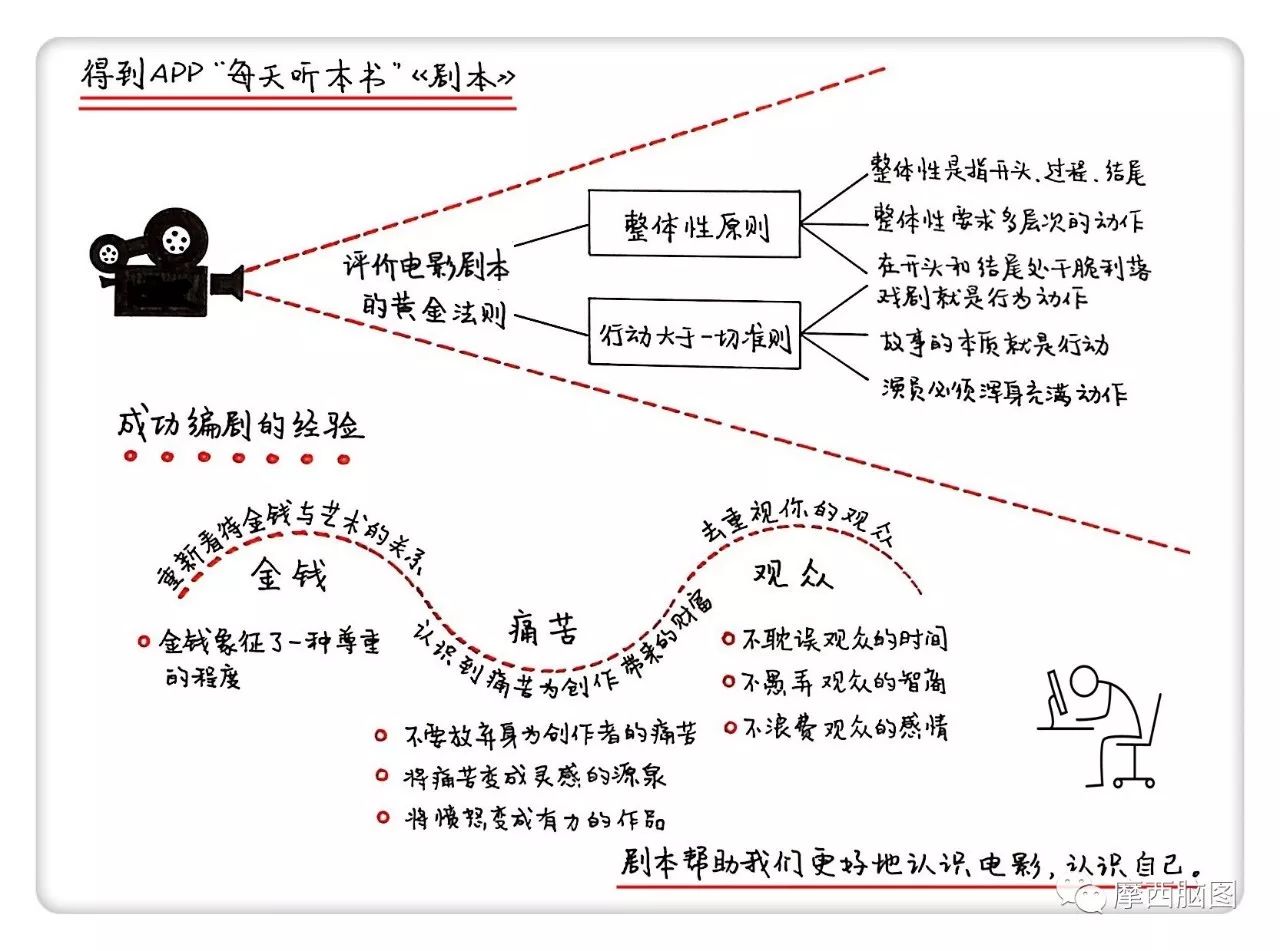 得到APP“每天听本书”《剧本》
评价电影剧本
的黄金法则
整体性原则
整体性是指开头、过程、结尾
整体性要求多层次的动作
在开头和结尾处干脆利落
行动大于一切准则
戏剧就是行为动作
故事的本质就是行动
演员必须浑身充满动作
成功编剧的经验
重新看待金钱与艺术的关系
金钱
金钱象征了一种尊重
的程度
痛苦
认识到痛苦为创作带来的财富
不要放弃身为创作者的痛苦
将痛苦变成灵感的源泉
将愤怒变成有力的作品
去重视你的观众
观众
不耽误观众的时间
不愚弄观众的智商
不浪费观众的感情
剧本帮助我们更好地认识电影,认识自己。
摩西脑图